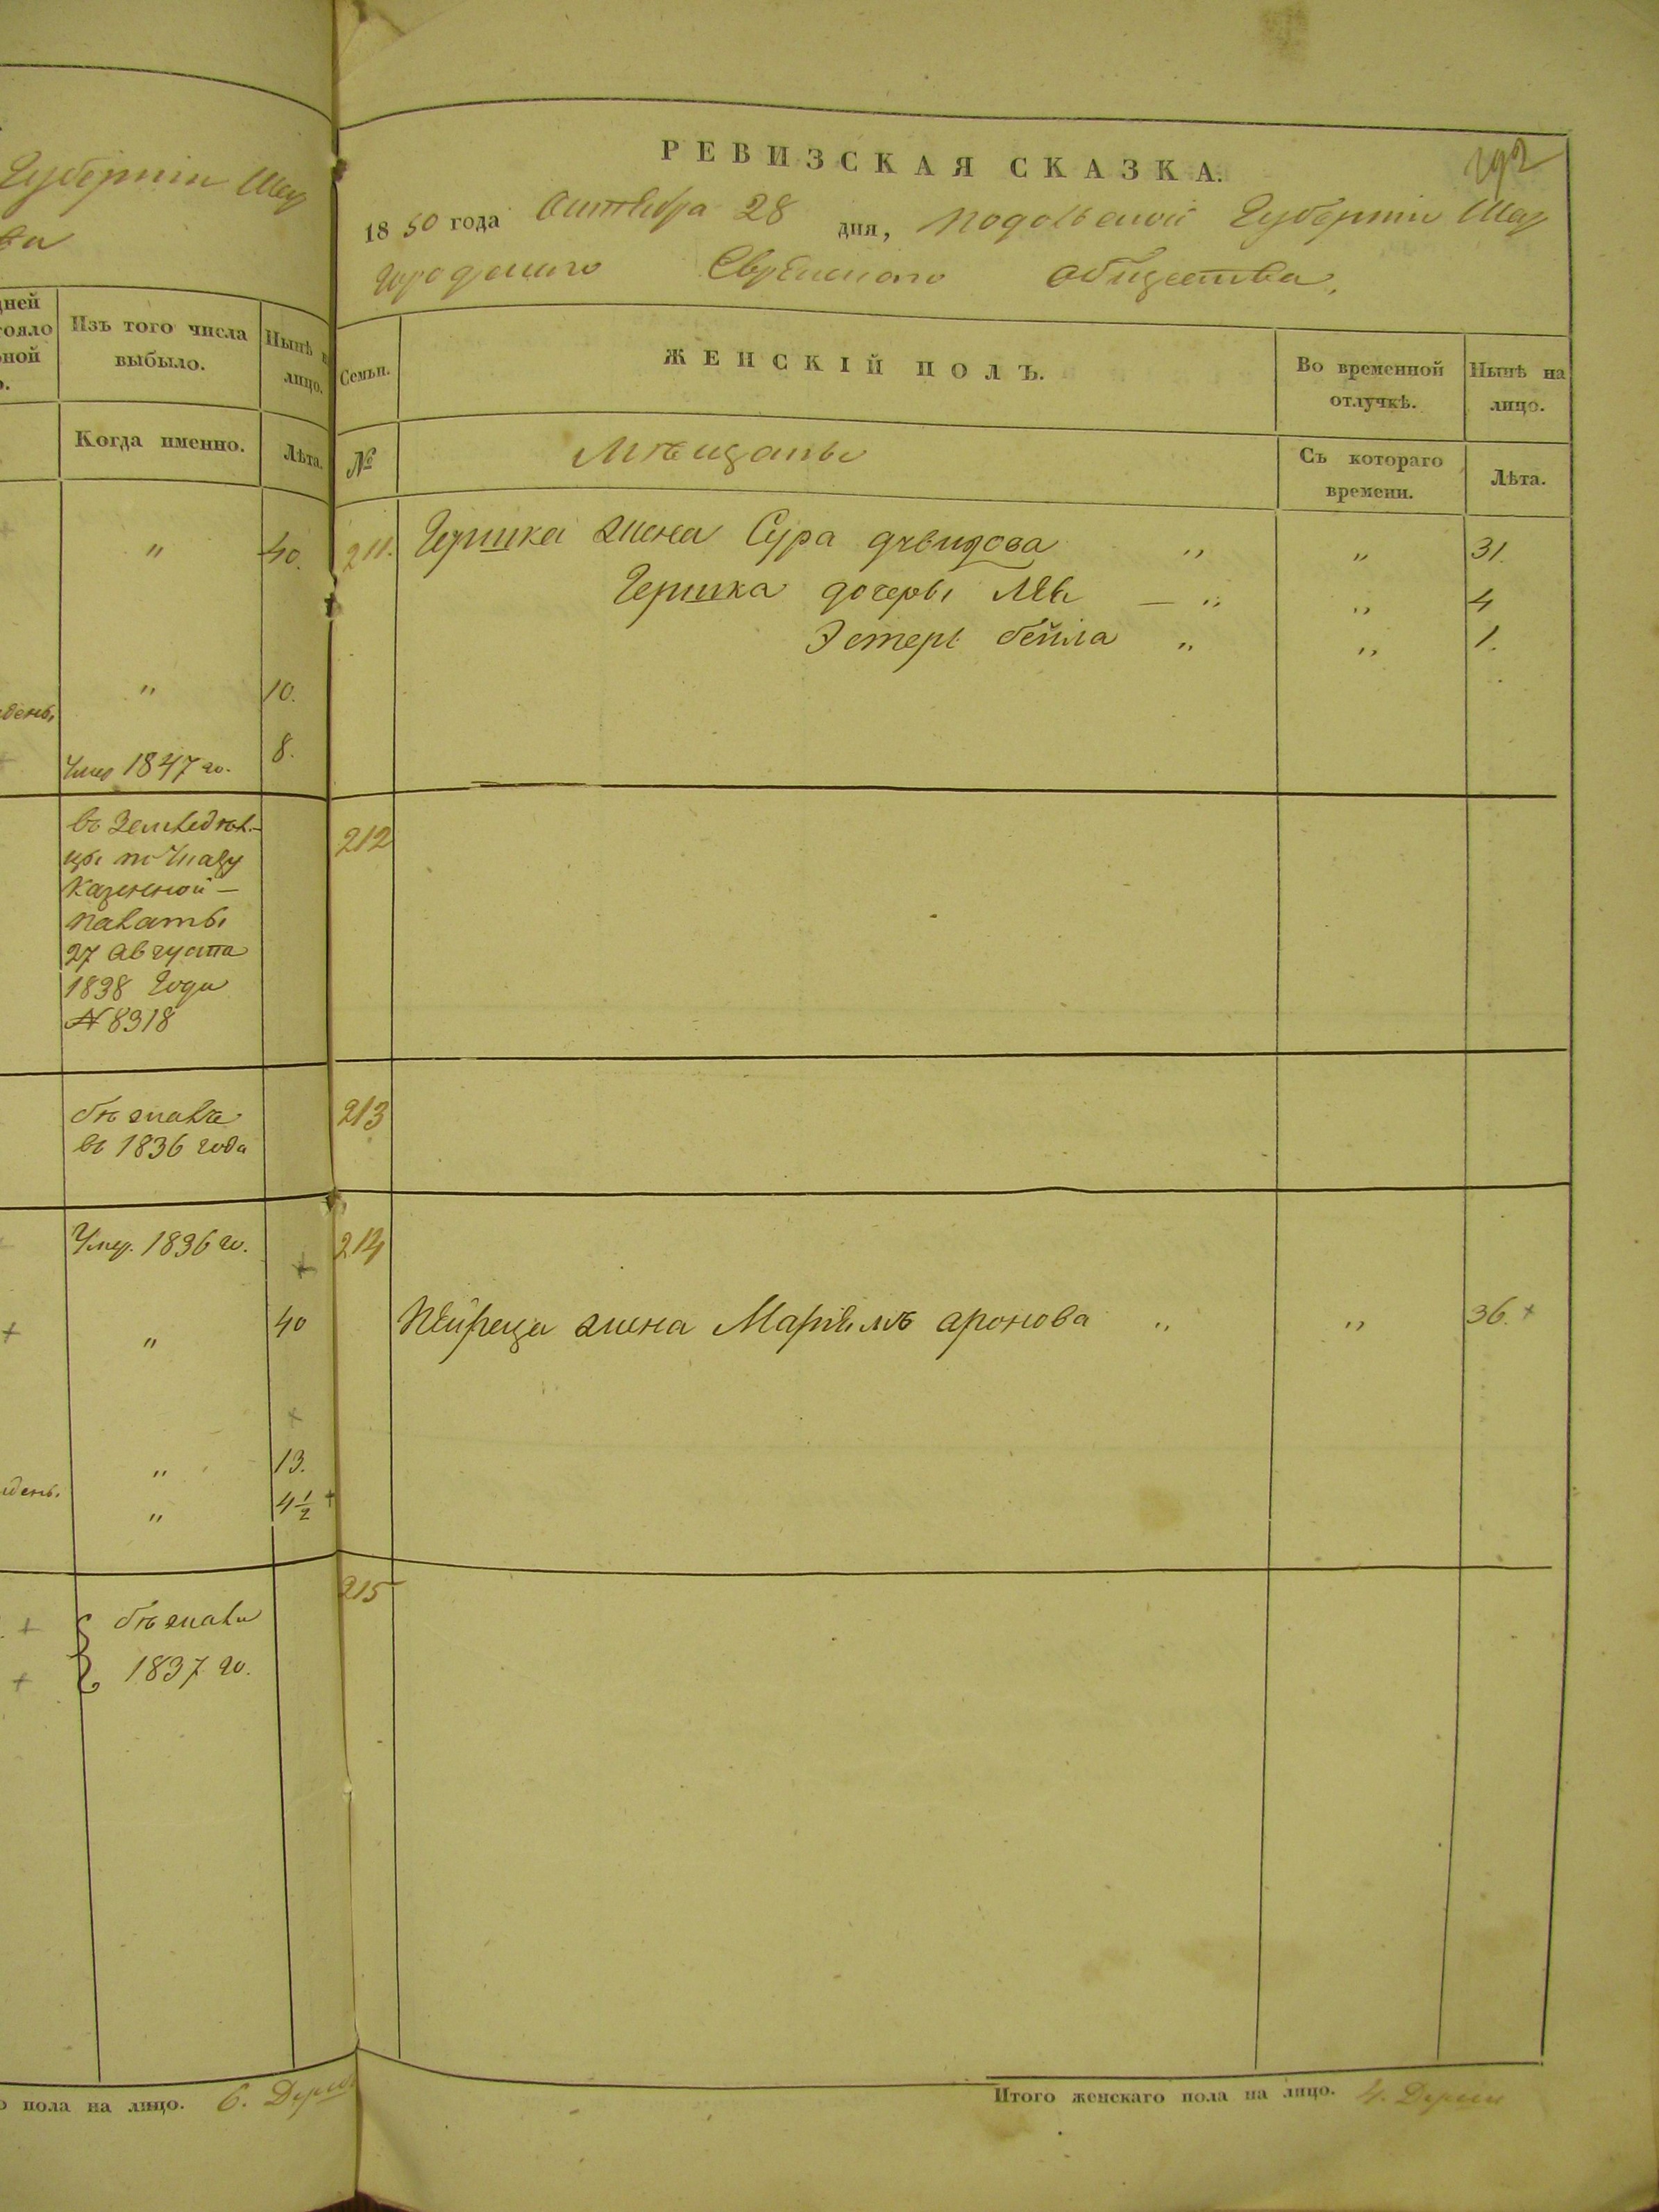 Губерніи Шар
дней
тояло
ной
Изъ того числа
выбыло.
Нынѣ н
лицо.
Когда именно.
Лѣта.
" 40.
" 10.
день,
Умер 1847 го. 8.
въ Земледѣль-
цы по Указу
Казенной —
палаты
27 августа
1838 Года
№ 8318
бѣжалъ
въ 1836 года
Умер. 1836 го.
+ " 40
" 13.
день. " 4 1/2 +
+ бѣжали
+ 1837 го.
пола на лицо. 6. Душъ
192
РЕВИЗСКАЯ СКАЗКА.
1850 года Октября 28 дня, Подольской Губерніи Шар
городскаго Еврейскаго общества,
Семьи. ЖЕНСКІЙ ПОЛЪ. Во временной отлучкѣ. Нынѣ на лицо.
№ Мѣщаны Съ котораго времени. Лѣта.
211. Гершка жена Сура давидова " " 31.
Гершка дочеры — " " 4
Эстеръ бейла " " 1.
212
213
214
жена Маріямъ аронова " " 36. +
215
Итого женскаго пола на лицо. 4. Души